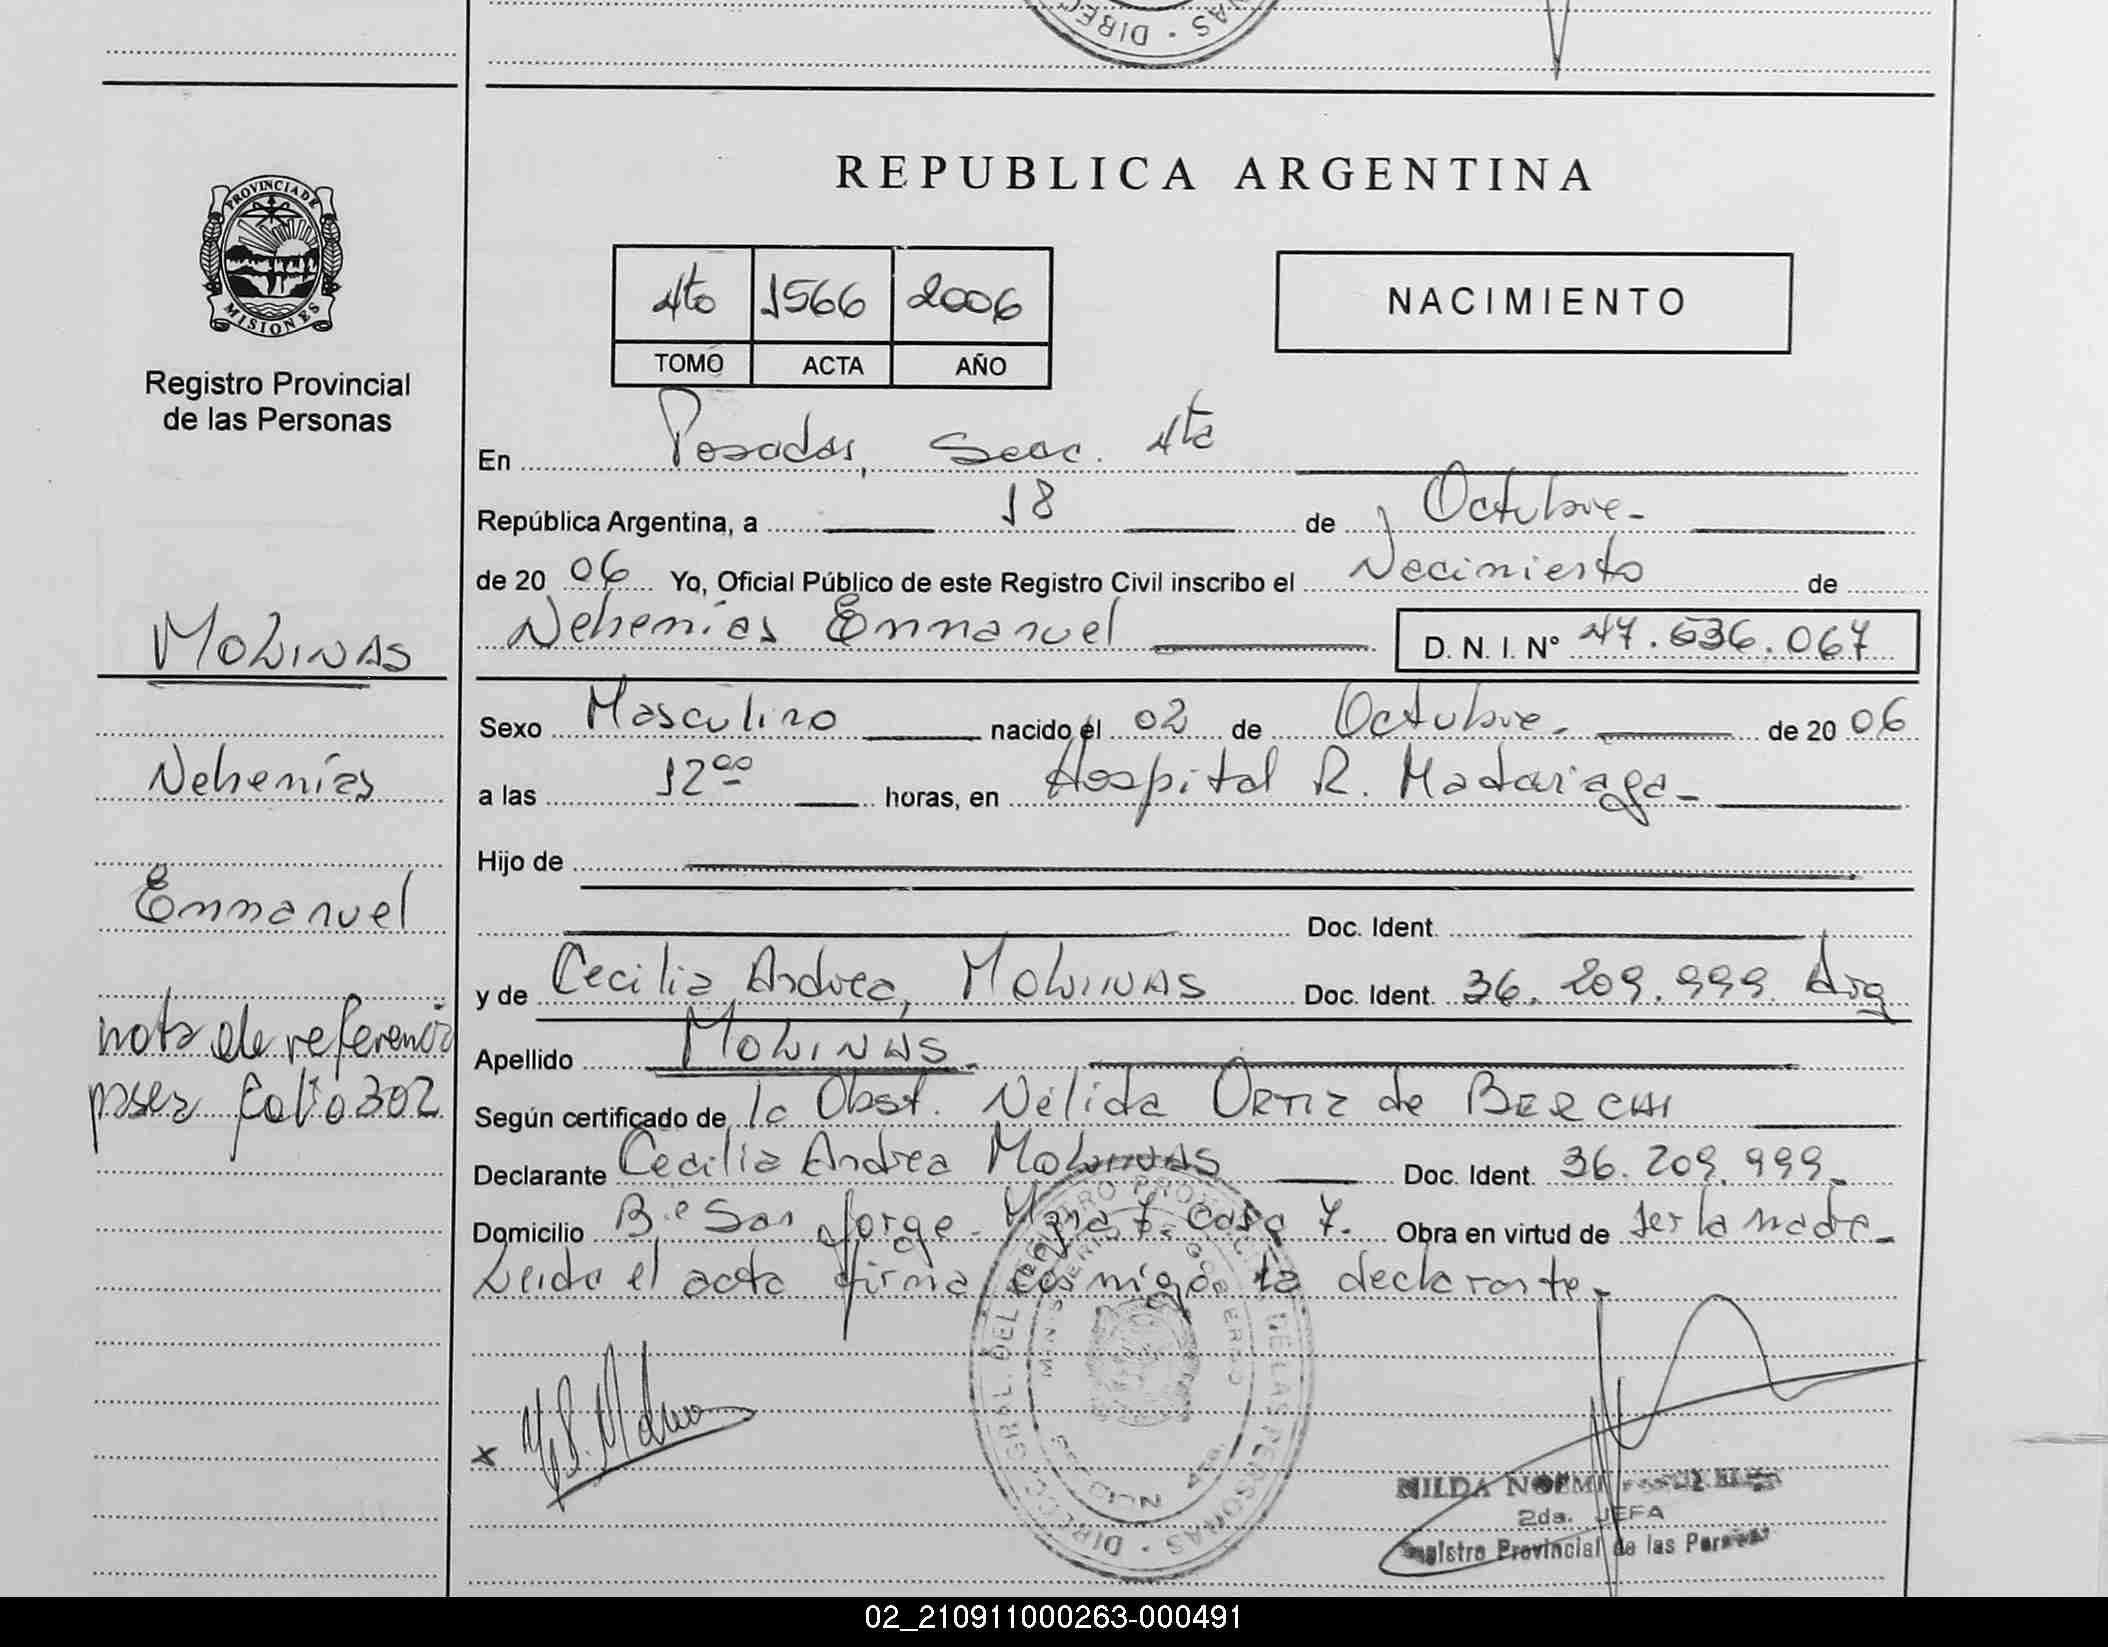 DIREC · NAS
REPUBLICA ARGENTINA
PROVINCIA DE
MISIONES
Registro Provincial
de las Personas
4to 1566 2006
TOMO ACTA AÑO
NACIMIENTO
En Posadas, Secc. 4ta
República Argentina, a 18 de Octubre.
de 20 06 Yo, Oficial Público de este Registro Civil inscribo el Nacimiento de
Nehemías Emmanuel D. N. I. Nº 47.636.067
MOLINAS
Sexo Masculino nacido el 02 de Octubre. de 20 06
Nehemías
a las 12 00 horas, en Hospital R. Madariaga
Hijo de
Emmanuel
Doc. Ident.
y de Cecilia Andrea, MOLINAS Doc. Ident. 36.209.999 Arg
nota de referencia
Apellido MOLINAS.
pasa folio 302
Según certificado de la Obst. Nélida ORTIZ de BERCHI
Declarante Cecilia Andrea MOLINAS Doc. Ident. 36.209.999
Domicilio B.º San Jorge. Mzna 7 Casa 7. Obra en virtud de ser la madre
Leida el acta firma conmigo la declarante.
x Molinas
NILDA NOEMI
2da. JEFA
Registro Provincial de las Personas
02_210911000263-000491